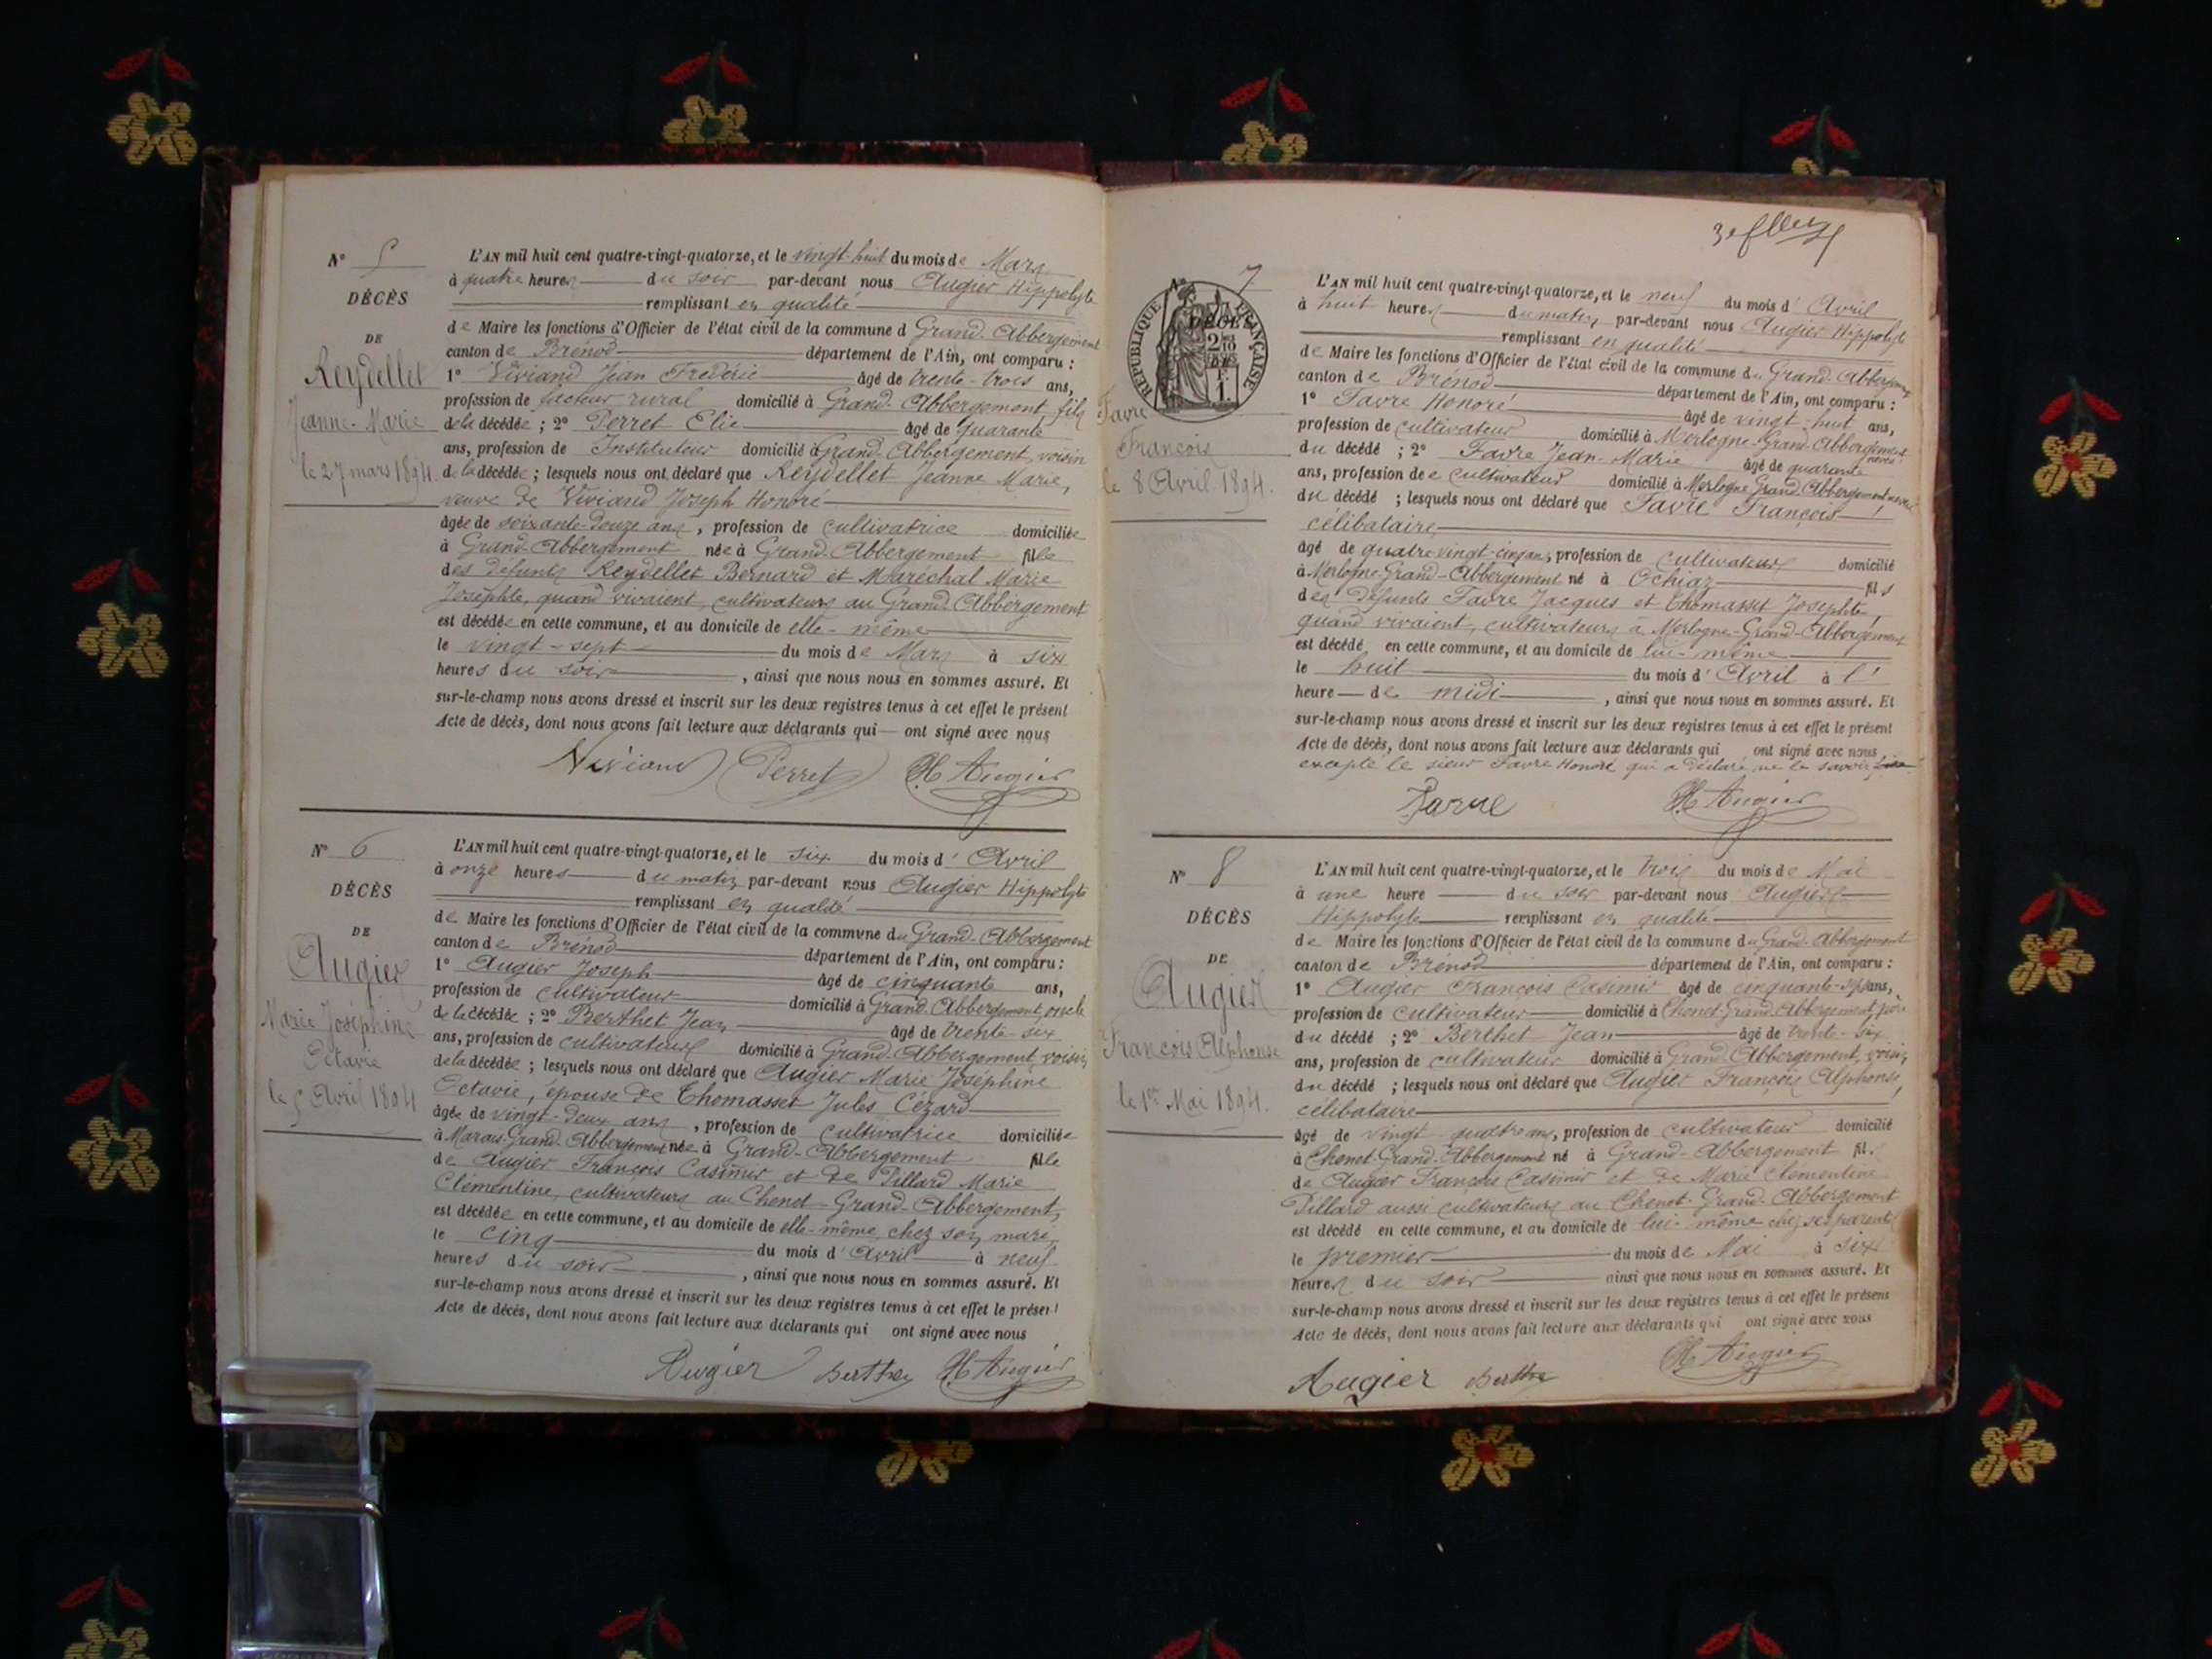 N° 5
DÉCÈS
DE
Reydellet
Jeanne-Marie
le 27 mars 1894.
L'AN mil huit cent quatre-vingt-quatorze, et le vingt-huit du mois de Mars
à quatre heures du soir par-devant nous Augier Hippolyte
remplissant en qualité
de Maire les fonctions d'Officier de l'état civil de la commune d Grand-Abbergement
canton de Brénod département de l'Ain, ont comparu :
1° Viviand Jean Frédéric âgé de trente-trois ans,
profession de facteur rural domicilié à Grand-Abbergement, fils
de la décédée ; 2° Perret Elie âgé de quarante
ans, profession de Instituteur domicilié à Grand-Abbergement, voisin
de la décédée ; lesquels nous ont déclaré que Reydellet Jeanne Marie,
veuve de Viviand Joseph Honoré
âgée de soixante-douze ans, profession de cultivatrice domiciliée
à Grand-Abbergement née à Grand-Abbergement fille
des défunts Reydellet Bernard et Maréchal Marie
Josephte, quand vivaient, cultivateurs au Grand-Abbergement
est décédée en cette commune, et au domicile de elle-même
le vingt-sept du mois de Mars à six
heures du soir, ainsi que nous nous en sommes assuré. Et
sur-le-champ nous avons dressé et inscrit sur les deux registres tenus à cet effet le présent
Acte de décès, dont nous avons fait lecture aux déclarants qui ont signé avec nous
Viviand Perret H. Augier
N° 6
DÉCÈS
DE
Augier
Marie Joséphine
Octavie
le 5 Avril 1894
L'AN mil huit cent quatre-vingt-quatorze, et le six du mois d' Avril
à onze heures du matin par-devant nous Augier Hippolyte
remplissant en qualité
de Maire les fonctions d'Officier de l'état civil de la commune du Grand-Abbergement
canton de Brénod département de l'Ain, ont comparu :
1° Augier Joseph âgé de cinquante ans,
profession de cultivateur domicilié à Grand-Abbergement, oncle
de la décédée ; 2° Berthet Jean âgé de trente-six
ans, profession de cultivateur domicilié à Grand-Abbergement, voisin
de la décédée ; lesquels nous ont déclaré que Augier Marie Joséphine
Octavie, épouse de Thomasset Jules Cézard
âgée de vingt-deux ans, profession de cultivatrice domiciliée
à Marais-Grand-Abbergement née à Grand-Abbergement fille
de Augier François Casimir et de Pillard Marie
Clémentine, cultivateurs au Chenet-Grand-Abbergement,
est décédée en cette commune, et au domicile de elle-même, chez son mari,
le cinq du mois d' Avril à neuf
heures du soir, ainsi que nous nous en sommes assuré. Et
sur-le-champ nous avons dressé et inscrit sur les deux registres tenus à cet effet le présent
Acte de décès, dont nous avons fait lecture aux déclarants qui ont signé avec nous
Augier Berthet H. Augier
N° 7
RÉPUBLIQUE FRANÇAISE
DÉCÈS
DE
Favre
François
le 8 Avril 1894.
L'AN mil huit cent quatre-vingt-quatorze, et le neuf du mois d' Avril
à huit heures du matin par-devant nous Augier Hippolyte
remplissant en qualité
de Maire les fonctions d'Officier de l'état civil de la commune du Grand-Abbergement
canton de Brénod département de l'Ain, ont comparu :
1° Favre Honoré âgé de vingt-huit ans,
profession de cultivateur domicilié à Merlogne-Grand-Abbergement neveu
du décédé ; 2° Favre Jean-Marie âgé de quarante
ans, profession de cultivateur domicilié à Merlogne Grand-Abbergement neveu
du décédé ; lesquels nous ont déclaré que Favre François,
célibataire,
âgé de quatre vingt-cinq ans, profession de cultivateur domicilié
à Merlogne-Grand-Abbergement né à Ochiaz fils
des défunts Favre Jacques et Thomasset Josephte,
quand vivaient, cultivateurs à Merlogne-Grand-Abbergement
est décédé en cette commune, et au domicile de lui-même
le huit du mois d' Avril à l'
heure de midi, ainsi que nous nous en sommes assuré. Et
sur-le-champ nous avons dressé et inscrit sur les deux registres tenus à cet effet le présent
Acte de décès, dont nous avons fait lecture aux déclarants qui ont signé avec nous,
excepté le sieur Favre Honoré qui a déclaré ne le savoir faire.
Favre H. Augier
N° 8
DÉCÈS
DE
Augier
François Alphonse
le 1er Mai 1894.
L'AN mil huit cent quatre-vingt-quatorze, et le trois du mois de Mai
à une heure du soir par-devant nous Augier
Hippolyte remplissant en qualité
de Maire les fonctions d'Officier de l'état civil de la commune du Grand-Abbergement
canton de Brénod département de l'Ain, ont comparu :
1° Augier François Casimir âgé de cinquante-sept ans,
profession de cultivateur domicilié à Chenet-Grand-Abbergement, père
du décédé ; 2° Berthet Jean âgé de trente-six
ans, profession de cultivateur domicilié à Grand-Abbergement, voisin
du décédé ; lesquels nous ont déclaré que Augier François Alphonse,
célibataire
âgé de vingt quatre ans, profession de cultivateur domicilié
à Chenet-Grand-Abbergement né à Grand-Abbergement fils
de Augier François Casimir et de Marie Clémentine
Pillard aussi cultivateurs au Chenet-Grand-Abbergement
est décédé en cette commune, et au domicile de lui-même chez ses parents
le premier du mois de Mai à six
heures du soir ainsi que nous nous en sommes assuré. Et
sur-le-champ nous avons dressé et inscrit sur les deux registres tenus à cet effet le présent
Acte de décès, dont nous avons fait lecture aux déclarants qui ont signé avec nous
Augier Berthet H. Augier